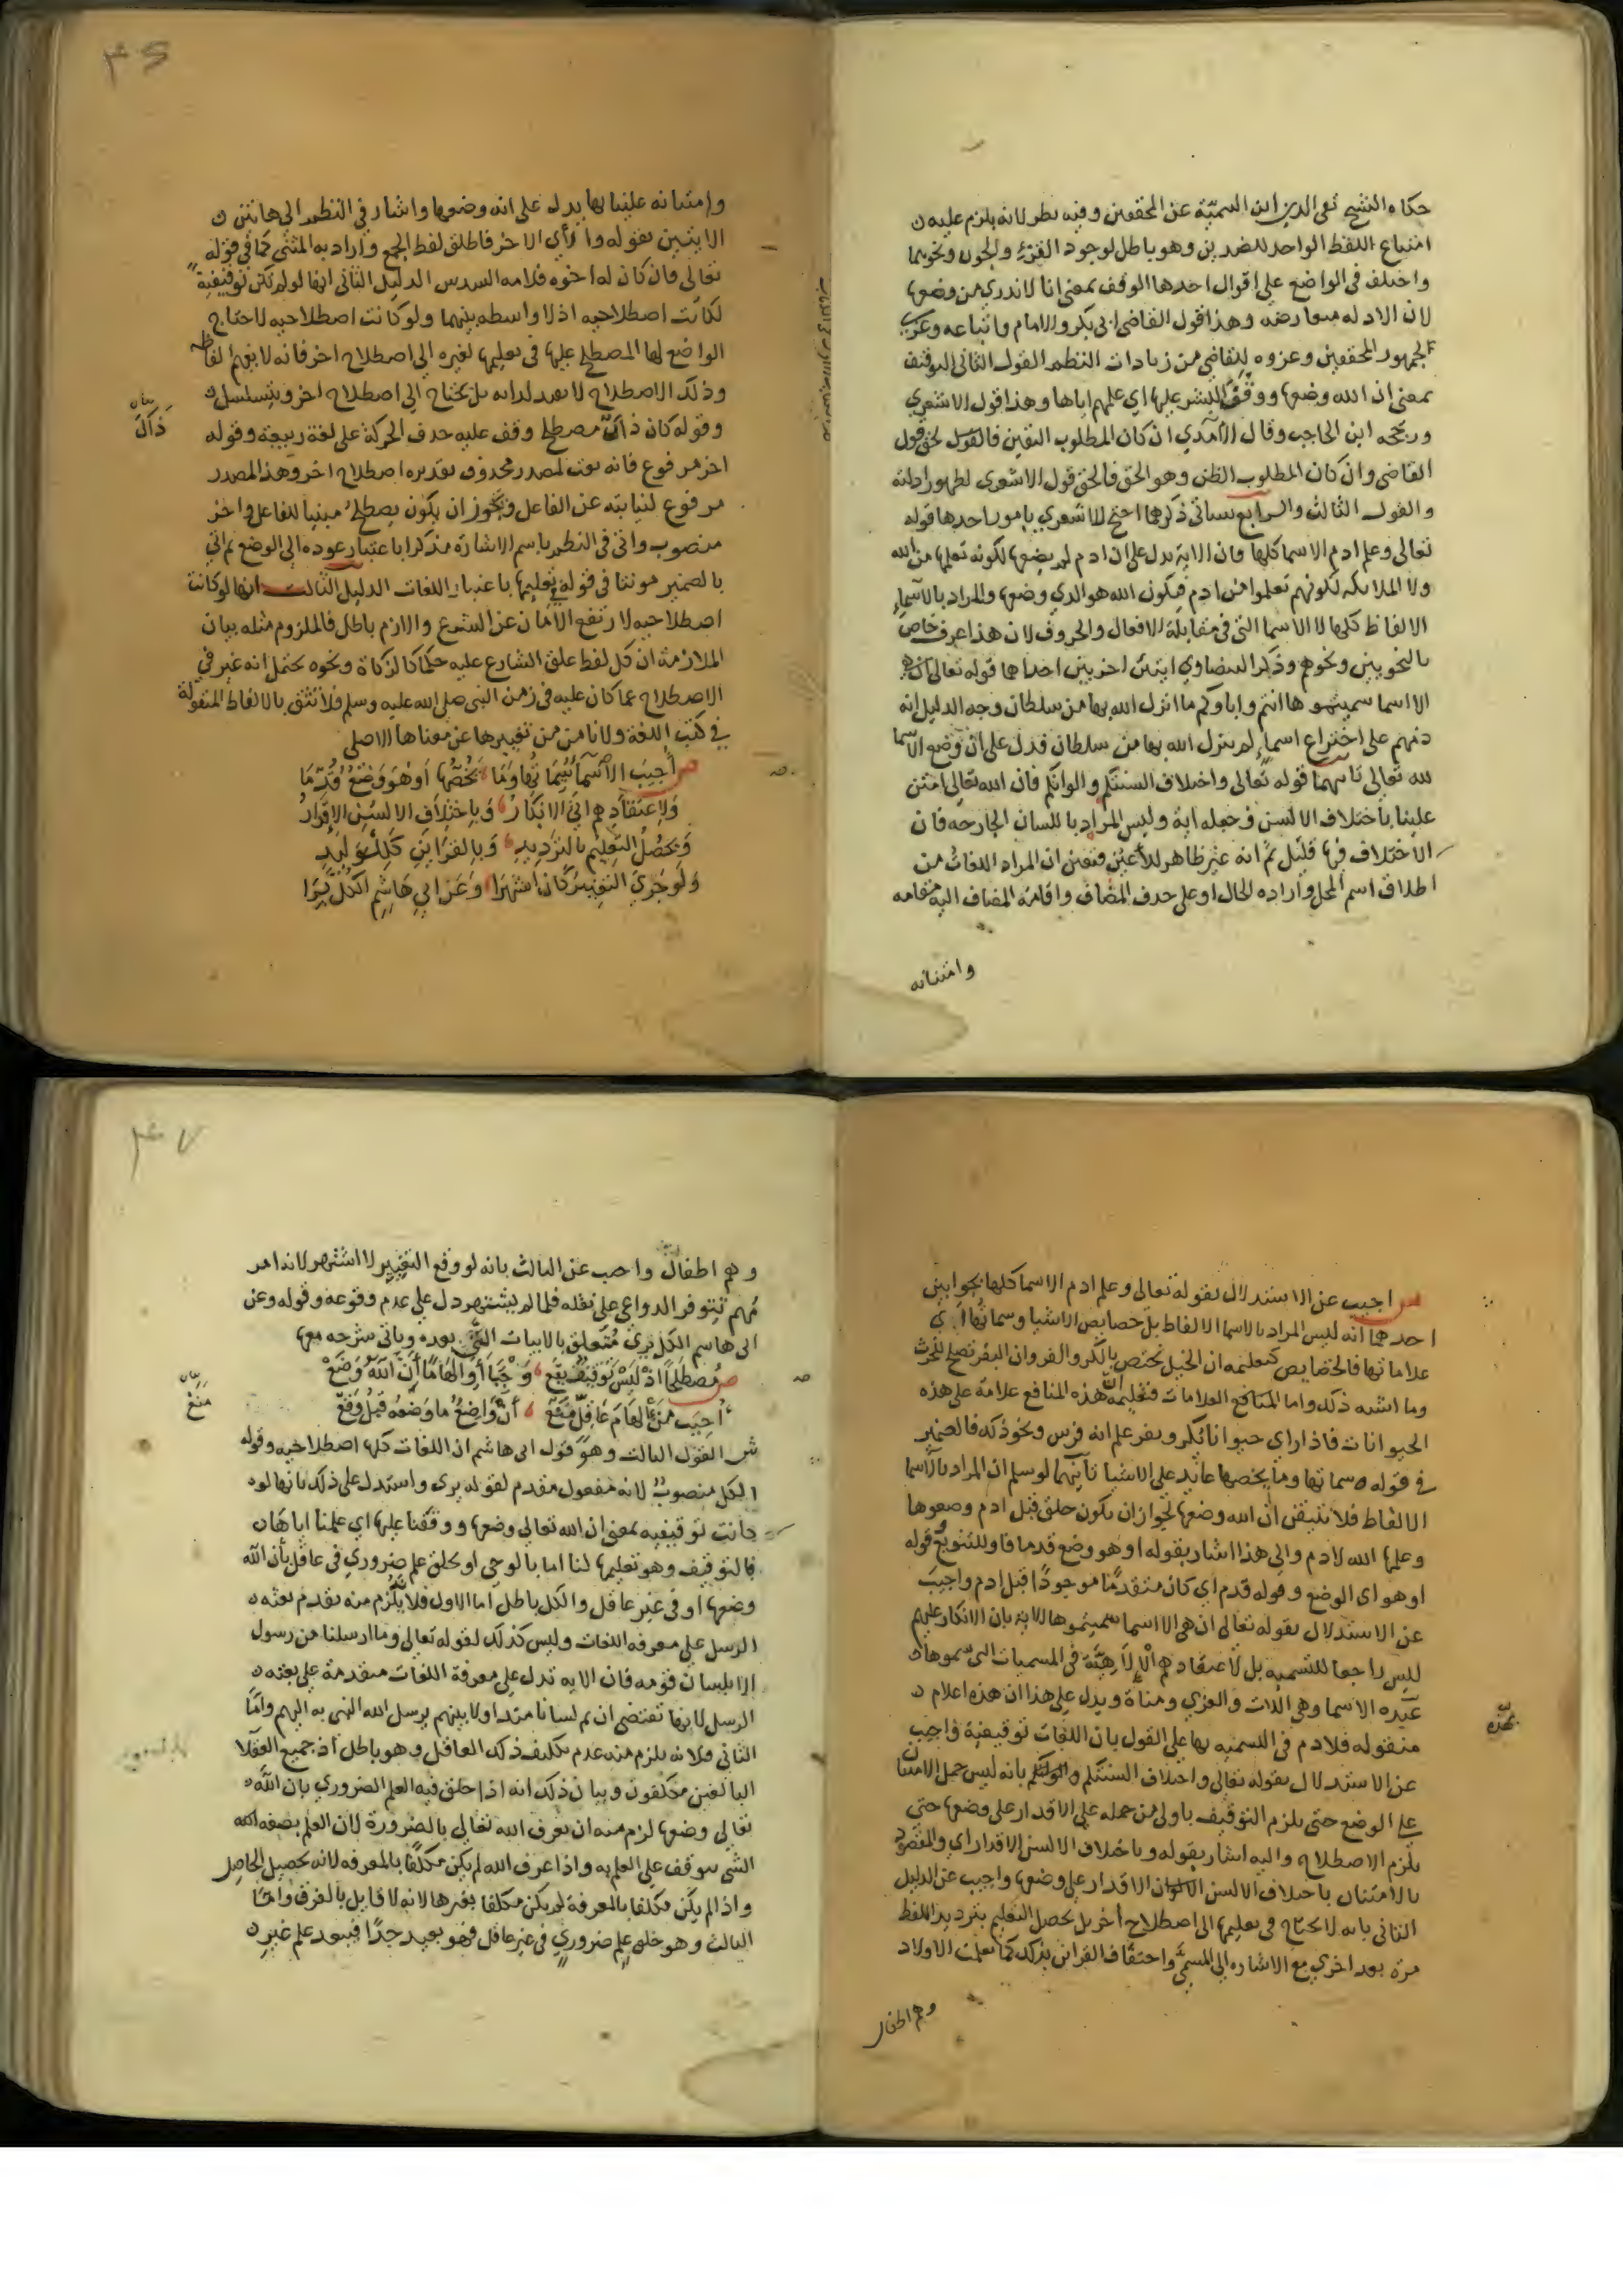 حكاه الشيخ تقي الدين ابن السميّة عن المحققين وفيه نظر لانه يلزم عليه
امتناع اللفظ الواحد للضدين وهو باطل لوجود القرء والجون ونحوهما
واختلف في الواضع علي اقوال احدها الوقف بمعني انا لا ندري من وضعها
لان الادله متعارضه وهذا قول القاضي ابي بكر والامام واتباعه وعزي
للجمهور المحققين وعزوه للقاضي من زيادات النظم القول الثاني التوقيف
بمعني ان الله وضعها ووقف البشر عليها اي علمهم اياها وهذا قول الاشعري
ورجحه ابن الحاجب وقال الآمدي ان كان المطلوب اليقين فالقول الحق قول
القاضي وان كان المطلوب الظن وهو الحق فالحق قول الاشعري لظهور ادلته
والقول الثالث والرابع سياتي ذكرهما احتج الاشعري بامور احدها قوله
تعالي وعلم ادم الاسما كلها فان الاية يدل علي ان ادم لم يضعها لكونه تعلمها من الله
ولا الملايكه لكونهم تعلموا من ادم فيكون الله هو الذي وضعها والمراد بالاسماء
الالفاظ كلها لا الاسما التي في مقابلة الافعال والحروف لان هذا عرف خاص
بالنحويين ونحوهم وذكر البيضاوي ايتين اخريين احداها قوله تعالي ان هي
الا اسما سميتموها انتم واباوكم ما انزل الله بها من سلطان وجه الدليل انه
ذمهم علي اختراع اسماء لم ينزل الله بها من سلطان فدل علي ان وضع الاسما
لله تعالي ثانيهما قوله تعالي واختلاف السنتكم والوانكم فان الله تعالي امتن
علينا باختلاف الالسن وجعله اية وليس المراد باللسان الجارحه فان
الاختلاف فيها قليل ثم انه غير ظاهر للأعين فتعين ان المراد اللغات من
اطلاق اسم المحل واراده الحال او علي حذف المضاف واقامة المضاف اليه مقامه
وامتنانه
وامتنانه علينا بها يدل علي انه وضعها واشار في النظم الي هاتين
الايتين بقوله والآي الاخر فاطلق لفظ الجمع واراد به المثني كما في قوله
تعالي فان كان له اخوه فلامه السدس الدليل الثاني انها لو لم تكن توقيفية
لكانت اصطلاحيه اذ لا واسطه بينهما ولو كانت اصطلاحيه لاحتاج
الواضع لها المصطلح عليها في تعليمها لغيره الي اصطلاح اخر فانه لا يفهم الفاظه
وذلك الاصطلاح لا يفيد لذاته بل يحتاج الي اصطلاح اخر ويتسلسل
ذاك
بيان
وقوله كان ذاك مصطلح وقف عليه بحذف الحركة علي لغة ربيعة وقوله
اخر مرفوع فانه نعت لمصدر محذوف تقديره اصطلاح اخر وهذا المصدر
مرفوع لنيابته عن الفاعل ويجوز ان يكون يصطلح مبنيا للفاعل واخر
منصوب واتي في النظم باسم الاشارة مذكرا باعتبار عوده الي الوضع ثم اتي
بالضمير مونثا في قوله في تعليمها باعتبار اللغات الدليل الثالث انها لو كانت
اصطلاحيه لارتفع الامان عن الشرع والازم باطل فالملزوم مثله بيان
الملازمة ان كل لفظ علق الشارع عليه حكما كالزكاة ونحوه يحتمل انه غير في
الاصطلاح عما كان عليه في زمن النبي صلي الله عليه وسلم فلا نثق بالالفاظ المنقولة
في كتب اللغة ولا نامن من تغييرها عن معناها الاصلي
ص أجيب الاسما سماتها وما يخصها أو هو وضع قدما
ولاعتقادهم اتي الانكار وباختلاف الالسن الاقدار
ويحصل التعليم بالترديد وبالقراين كللوليد
ولو جري التغيير كان اشتهرا وعن ابي هاشم الكل يرا
ص اجيب عن الاستدلال بقوله تعالي وعلم ادم الاسما كلها بجوابين
احدهما انه ليس المراد بالاسما الالفاظ بل خصايص الاشيا وسماتها اي
علاماتها فالخصايص كتعليمه ان الخيل تختص بالكر والفر وان البقر تصلح للحرث
وما اشبه ذلك واما المنافع العلامات فتعليمه ان هذه المنافع علامة علي هذه
الحيوانات فاذا راي حيوانا يكر ويفر علم انه فرس ونحو ذلك فالضمير
في قوله سماتها وما يخصها عايد علي الاشيا ثانيهما لو سلم ان المراد بالاسما
الالفاظ فلا نتيقن ان الله وضعها لجواز ان يكون خلق قبل ادم وضعوها
وعلمها الله لادم والي هذا اشار بقوله او هو وضع قدما فاو للتنويع وقوله
او هو اي الوضع وقوله قدم اي كان متقدما موجودا قبل ادم واجيب
عن الاستدلال بقوله تعالي ان هي الا اسما سميتموها الاية بان الانكار عليهم
ليس راجعا للتسميه بل لاعتقادهم الالاهية في المسميات التي سموها
بهذه
بهذه الاسما وهي اللات والعزي ومناة ويدل علي هذا ان هذه اعلام
منقوله فلا ذم في التسميه بها علي القول بان اللغات توقيفية واجيب
عن الاستدلال بقوله تعالي واختلاف السنتكم والوانكم بانه ليس حمل الامتنان
علي الوضع حتي يلزم التوقيف باولي من حمله علي الاقدار علي وضعها حتي
يلزم الاصطلاح واليه اشار بقوله وباختلاف الالسن الاقدار اي والمقصود
بالامتنان باختلاف الالسن الاقدار علي وضعها واجيب عن الدليل
الثاني بانه لا يحتاج في تعليمها الي اصطلاح اخر بل يحصل التعليم بترديد اللفظ
مرة بعد اخري مع الاشاره الي المسمي واحتفاف القراين بذلك كما تعلمت الاولاد
وهم اطفال
وهم اطفال واجيب عن الثالث بانه لو وقع التغيير لاشتهر لانه امر
مهم تتوفر الدواعي علي نقله فلما لم يشتهر دل علي عدم وقوعه وقوله وعن
ابي هاشم الكل يري متعلق بالابيات التي بعده وياتي شرحه معها
ص مصطلحا اذ ليس توقيف يقع وحيا أو الهاما أن الله وضع
منع
بيان
اجيب من الهام عاقل أن واضع ما وضعه قبل وقع
ش القول الثالث وهو قول ابي هاشم ان اللغات كلها اصطلاحيه وقوله
الكل منصوب لانه مفعول مقدم لقوله يري واستدل علي ذلك بانها لو
كانت توقيفيه بمعني ان الله تعالي وضعها ووقفنا عليها اي علمنا اياها
فالتوقيف وهو تعليمها لنا اما بالوحي او بخلق علم ضروري في عاقل بأن الله
وضعها او في غير عاقل والكل باطل اما الاول فلا يلزم منه تقدم بعثه
الرسل علي معرفه اللغات وليس كذلك لقوله تعالي وما ارسلنا من رسول
الا بلسان قومه فان الايه تدل علي معرفة اللغات متقدمة علي بعثه
الرسل لانها تقتضي ان ثم لسانا متداولا بينهم يرسل الله النبي به اليهم واما
الثاني فلانه يلزم منه عدم تكليف ذلك العاقل وهو باطل اذ جميع العقلا
البالغين مكلفون وبيان ذلك انه اذا خلق فيه العلم الضروري بان الله
تعالي وضعها لزم منه ان يعرف الله تعالي بالضرورة لان العلم بصفه
الشي متوقف علي العلم به واذا عرف الله لم يكن مكلفا بالمعرفه لانه تحصيل الحاصل
واذا لم يكن مكلفا بالمعرفة لم يكن مكلفا بغيرها لانه لا قايل بالفرق واما
الثالث وهو خلق علم ضروري في غير عاقل فهو بعيد جدا فيبعد علم غيره